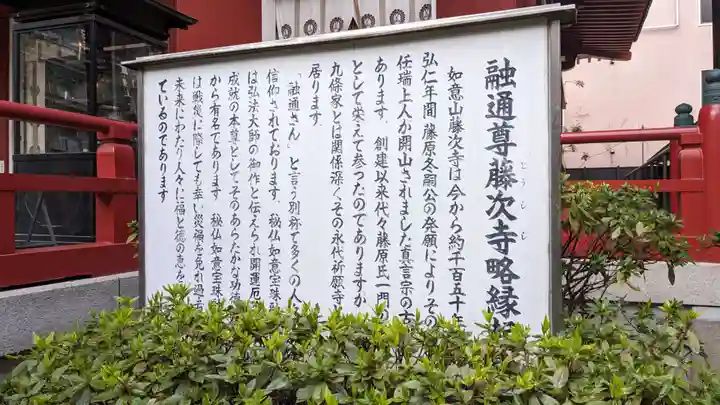 融通尊藤次寺略縁
とうじじ
如意山藤次寺は今から約千百五十年
弘仁年間 藤原冬嗣公の発願によりその
任瑞上人が開山されました真言宗の古
あります 創建以来代々藤原氏一門の
として栄えて参ったのでありますが
九條家とは関係深くその永代祈願寺
居ります
「融通さん」と言う別称で多くの人
信仰されております 秘仏如意宝珠
は弘法大師の御作と伝えられ開運厄
成就の本尊としてそのあらたかな功徳
から有名であります 秘仏如意宝珠
は戦災に際しても幸い災禍を免れ過去
未来にわたり人々に福と徳の恵みを
ているのであります